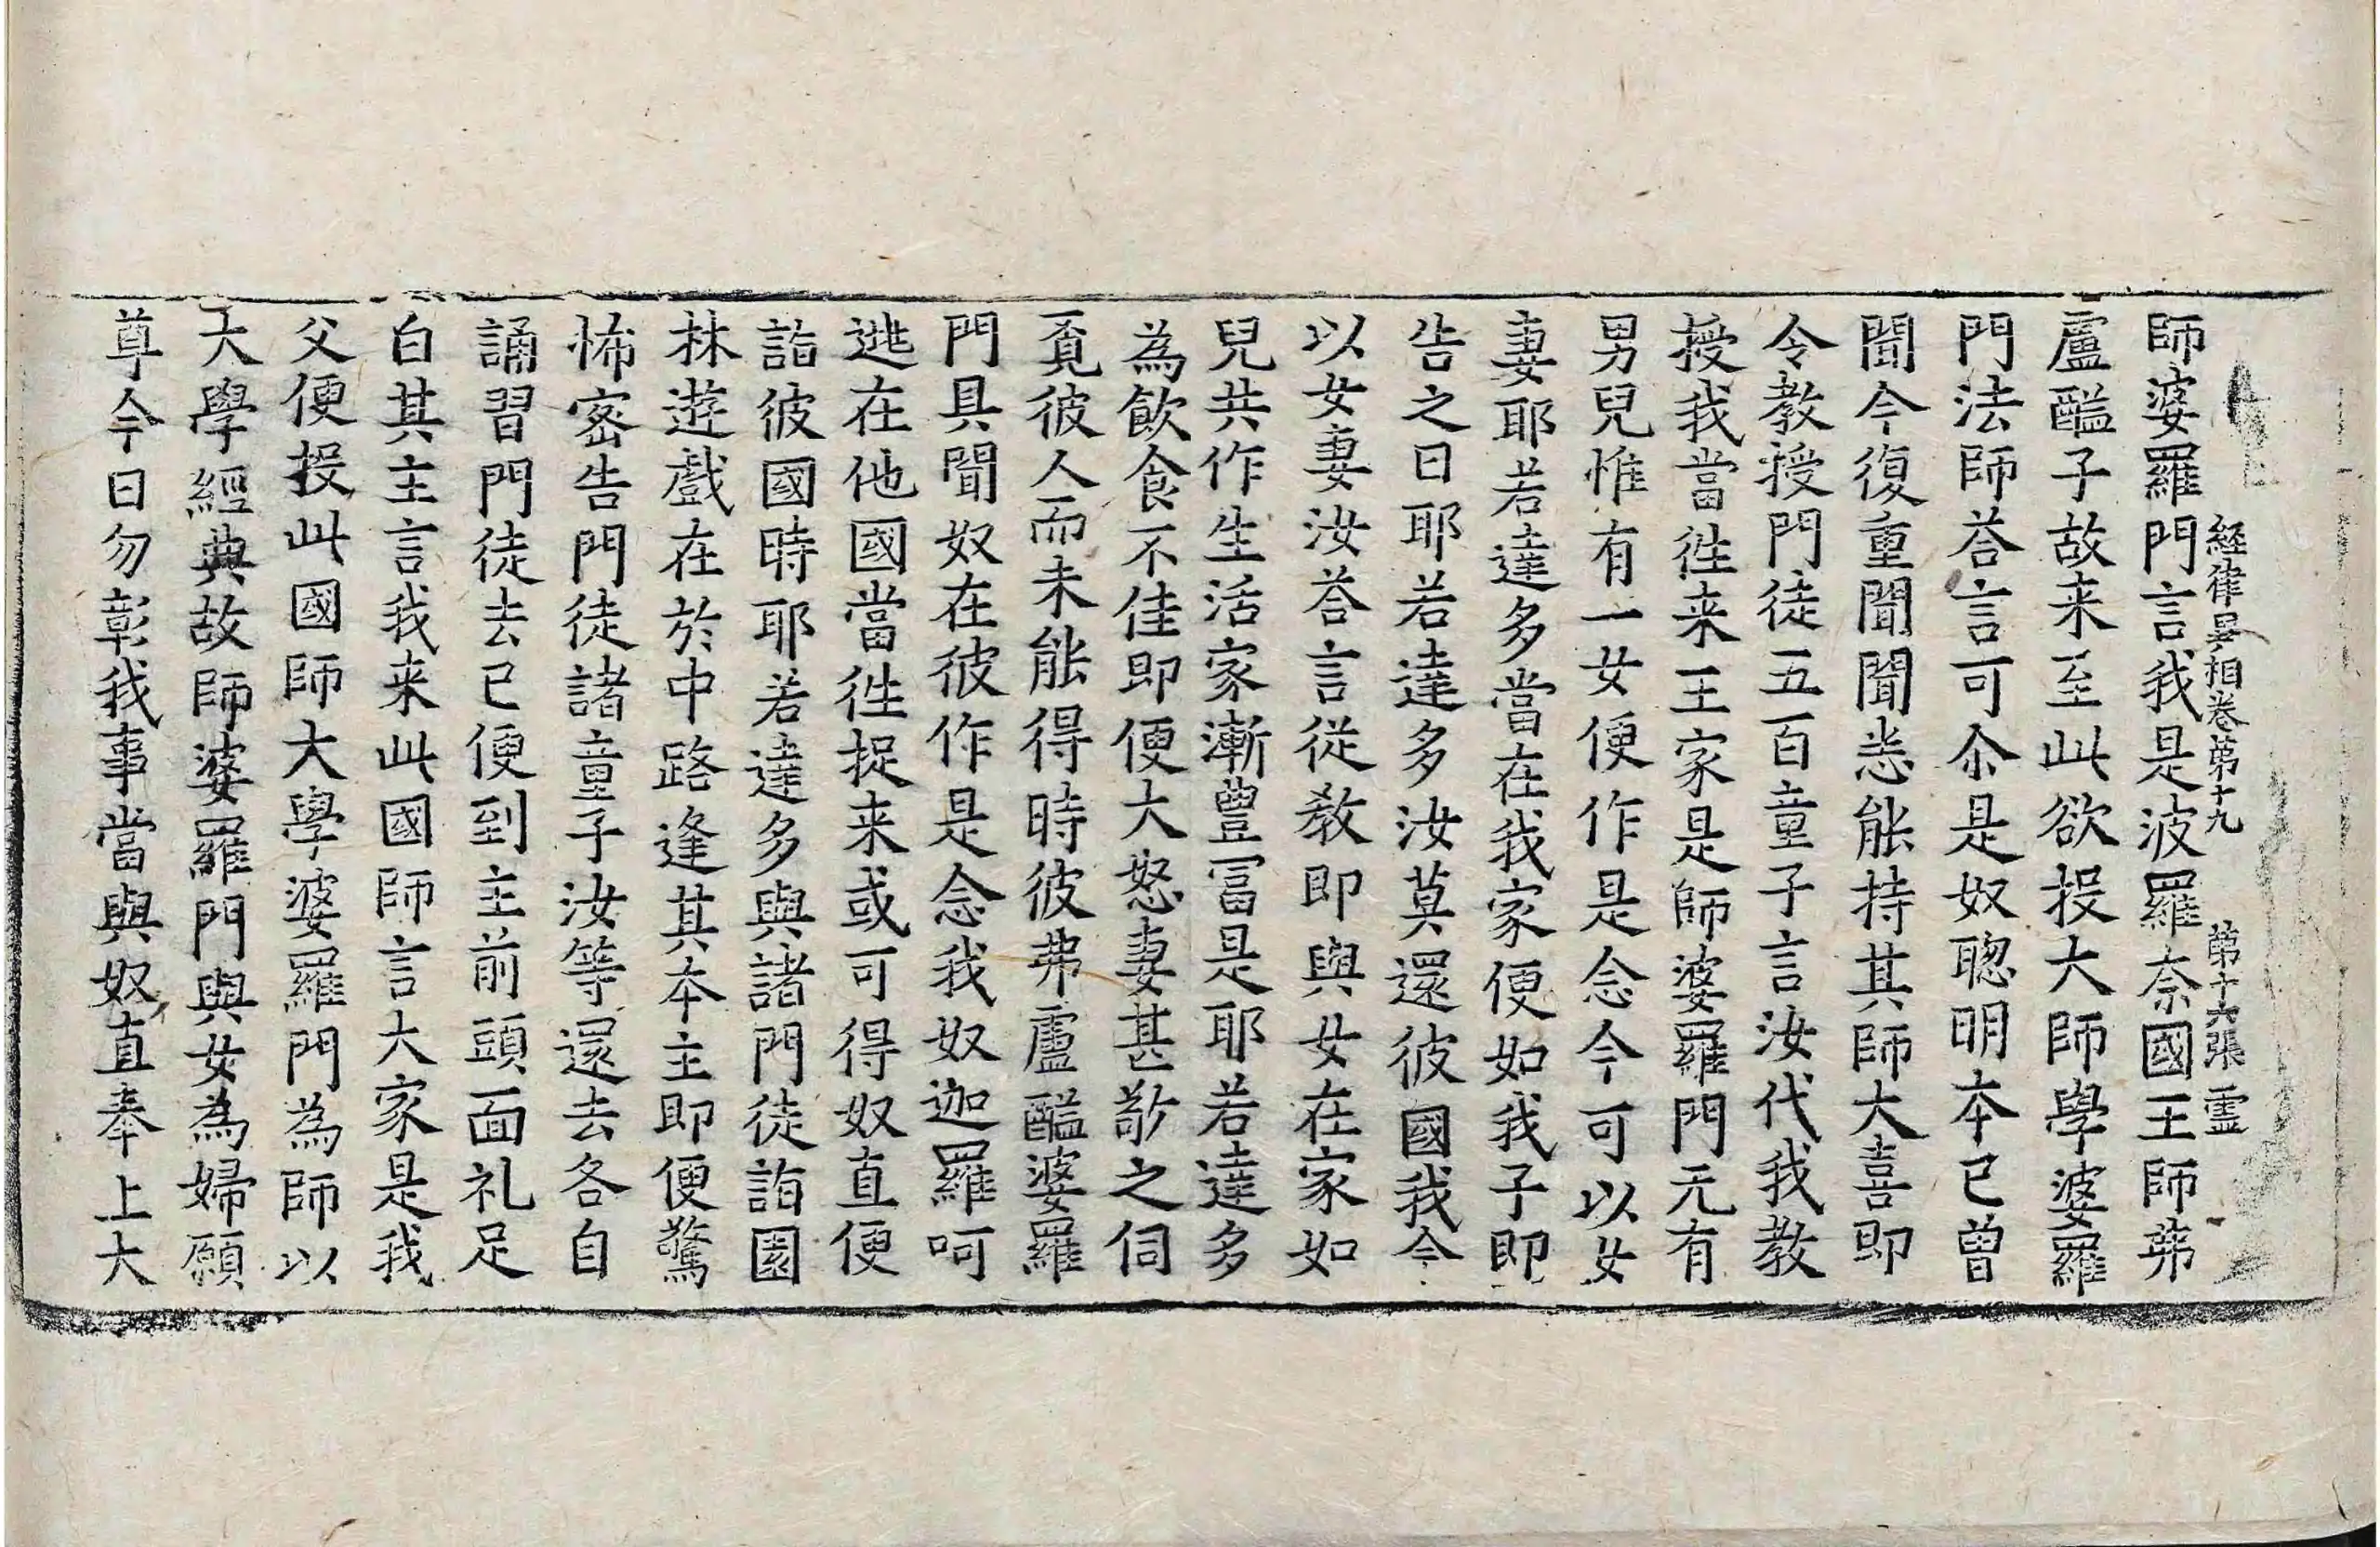 経律異相卷第十九 第十六張 霊
師婆羅門言我是波羅奈國王師弗
盧醯子故来至此欲投大師學婆羅
門法師荅言可尒是奴聦明本已曾
聞今復重聞聞悉能持其師大喜即
令教授門徒五百童子言汝代我教
授我當徃来王家是師婆羅門元有
男兒惟有一女便作是念今可以女
妻耶若達多當在我家便如我子即
告之曰耶若達多汝莫還彼國我今
以女妻汝荅言從教即與女在家如
兒共作生活家漸豊冨是耶若達多
為飲食不佳即便大怒妻甚敬之伺
覔彼人而未能得時彼弗盧醯婆羅
門具聞奴在彼作是念我奴迦羅呵
逃在他國當徃捉来或可得奴直便
詣彼國時耶若達多與諸門徒詣園
林遊戲在於中路逢其本主即便驚
怖密告門徒諸童子汝等還去各自
誦習門徒去已便到主前頭面礼足
白其主言我来此國師言大家是我
父便投此國師大學婆羅門為師以
大學經典故師婆羅門與女為婦願
尊今日勿彰我事當與奴直奉上大